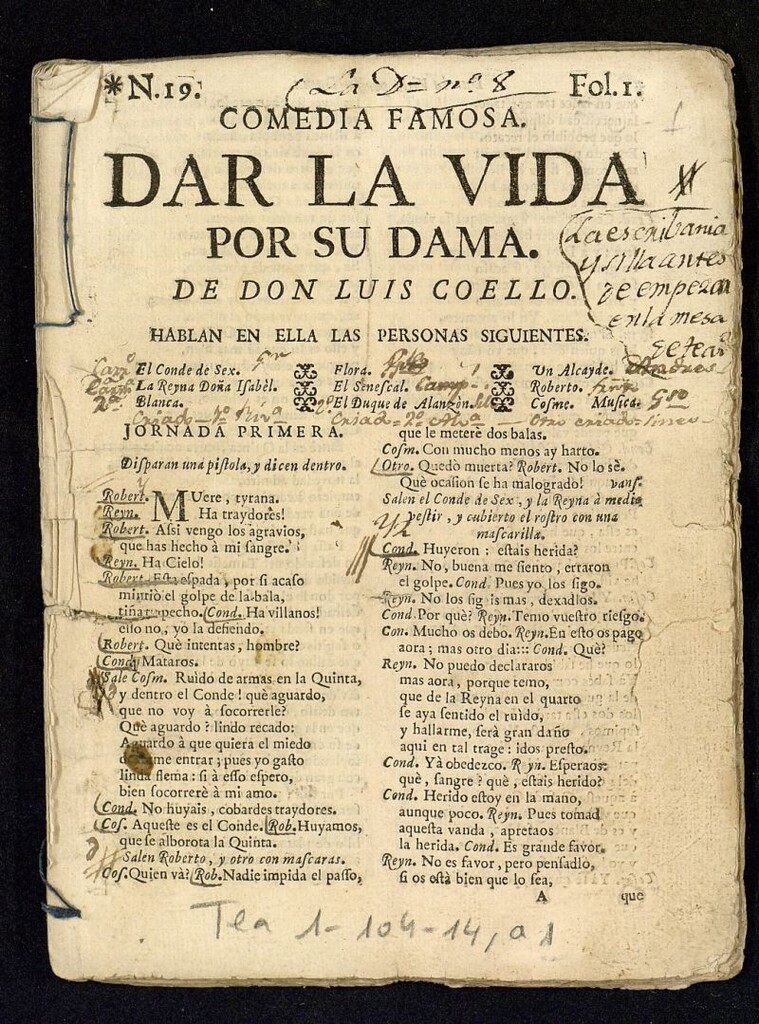 *N.19.
La D= nº 8
Fol.1.
COMEDIA FAMOSA.
DAR LA VIDA
POR SU DAMA.
DE DON LUIS COELLO.
La escribania
y silla antes
de empezar
en la mesa
HABLAN EN ELLA LAS PERSONAS SIGUIENTES.
El Conde de Sex. Flora. Un Alcayde.
La Reyna Doña Isabèl. El Senescal. Camp Roberto.
Blanca. El Duque de Alanzòn. Cosme. Musica.
JORNADA PRIMERA.
Disparan una pistola, y dicen dentro.
Robert. MUere, tyrana.
Reyn. Ha traydores!
Robert. Assi vengo los agravios,
que has hecho à mi sangre.
Reyn. Ha Cielo!
Robert. Esta espada, por si acaso
mintiò el golpe de la bala,
tiña tu pecho. Cond. Ha villanos!
esso no, yo la defiendo.
Robert. Què intentas, hombre?
Cond. Mataros.
Sale Cosm. Ruido de armas en la Quinta,
y dentro el Conde! què aguardo,
que no voy à socorrerle?
Què aguardo? lindo recado:
Aguardo à que quiera el miedo
dexarme entrar; pues yo gasto
linda flema: si à esso espero,
bien socorrerè à mi amo.
Cond. No huyais, cobardes traydores.
Cos. Aqueste es el Conde. Rob. Huyamos,
que se alborota la Quinta.
Salen Roberto, y otro con mascaras.
Cos. Quien và? Rob. Nadie impida el passo,
que le meterè dos balas.
Cosm. Con mucho menos ay harto.
Otro. Quedò muerta? Robert. No lo sè.
Què ocasion se ha malogrado! vans.
Salen el Conde de Sex, y la Reyna à medio
vestir, y cubierto el rostro con una
mascarilla.
Cond. Huyeron: estais herida?
Reyn. No, buena me siento, erraron
el golpe. Cond. Pues yo los sigo.
Reyn. No los sigais mas, dexadlos.
Cond. Por què? Reyn. Temo vuestro riesgo.
Con. Mucho os debo. Reyn. En esto os pago
aora; mas otro dia::: Cond. Què?
Reyn. No puedo declararos
mas aora, porque temo,
que de la Reyna en el quarto
se aya sentido el ruido,
y hallarme, serà gran daño
aqui en tal trage: idos presto.
Cond. Yà obedezco. Reyn. Esperaos:
què, sangre? què, estais herido?
Cond. Herido estoy en la mano,
aunque poco. Reyn. Pues tomad
aquesta vanda, apretaos
la herida. Cond. Es grande favor.
Reyn. No es favor, pero pensadlo,
si os està bien que lo sea,
A que
Tea 1-104-14, a1